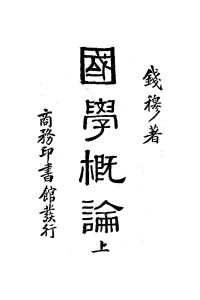 錢穆著
國學概論
上
商務印書館發行